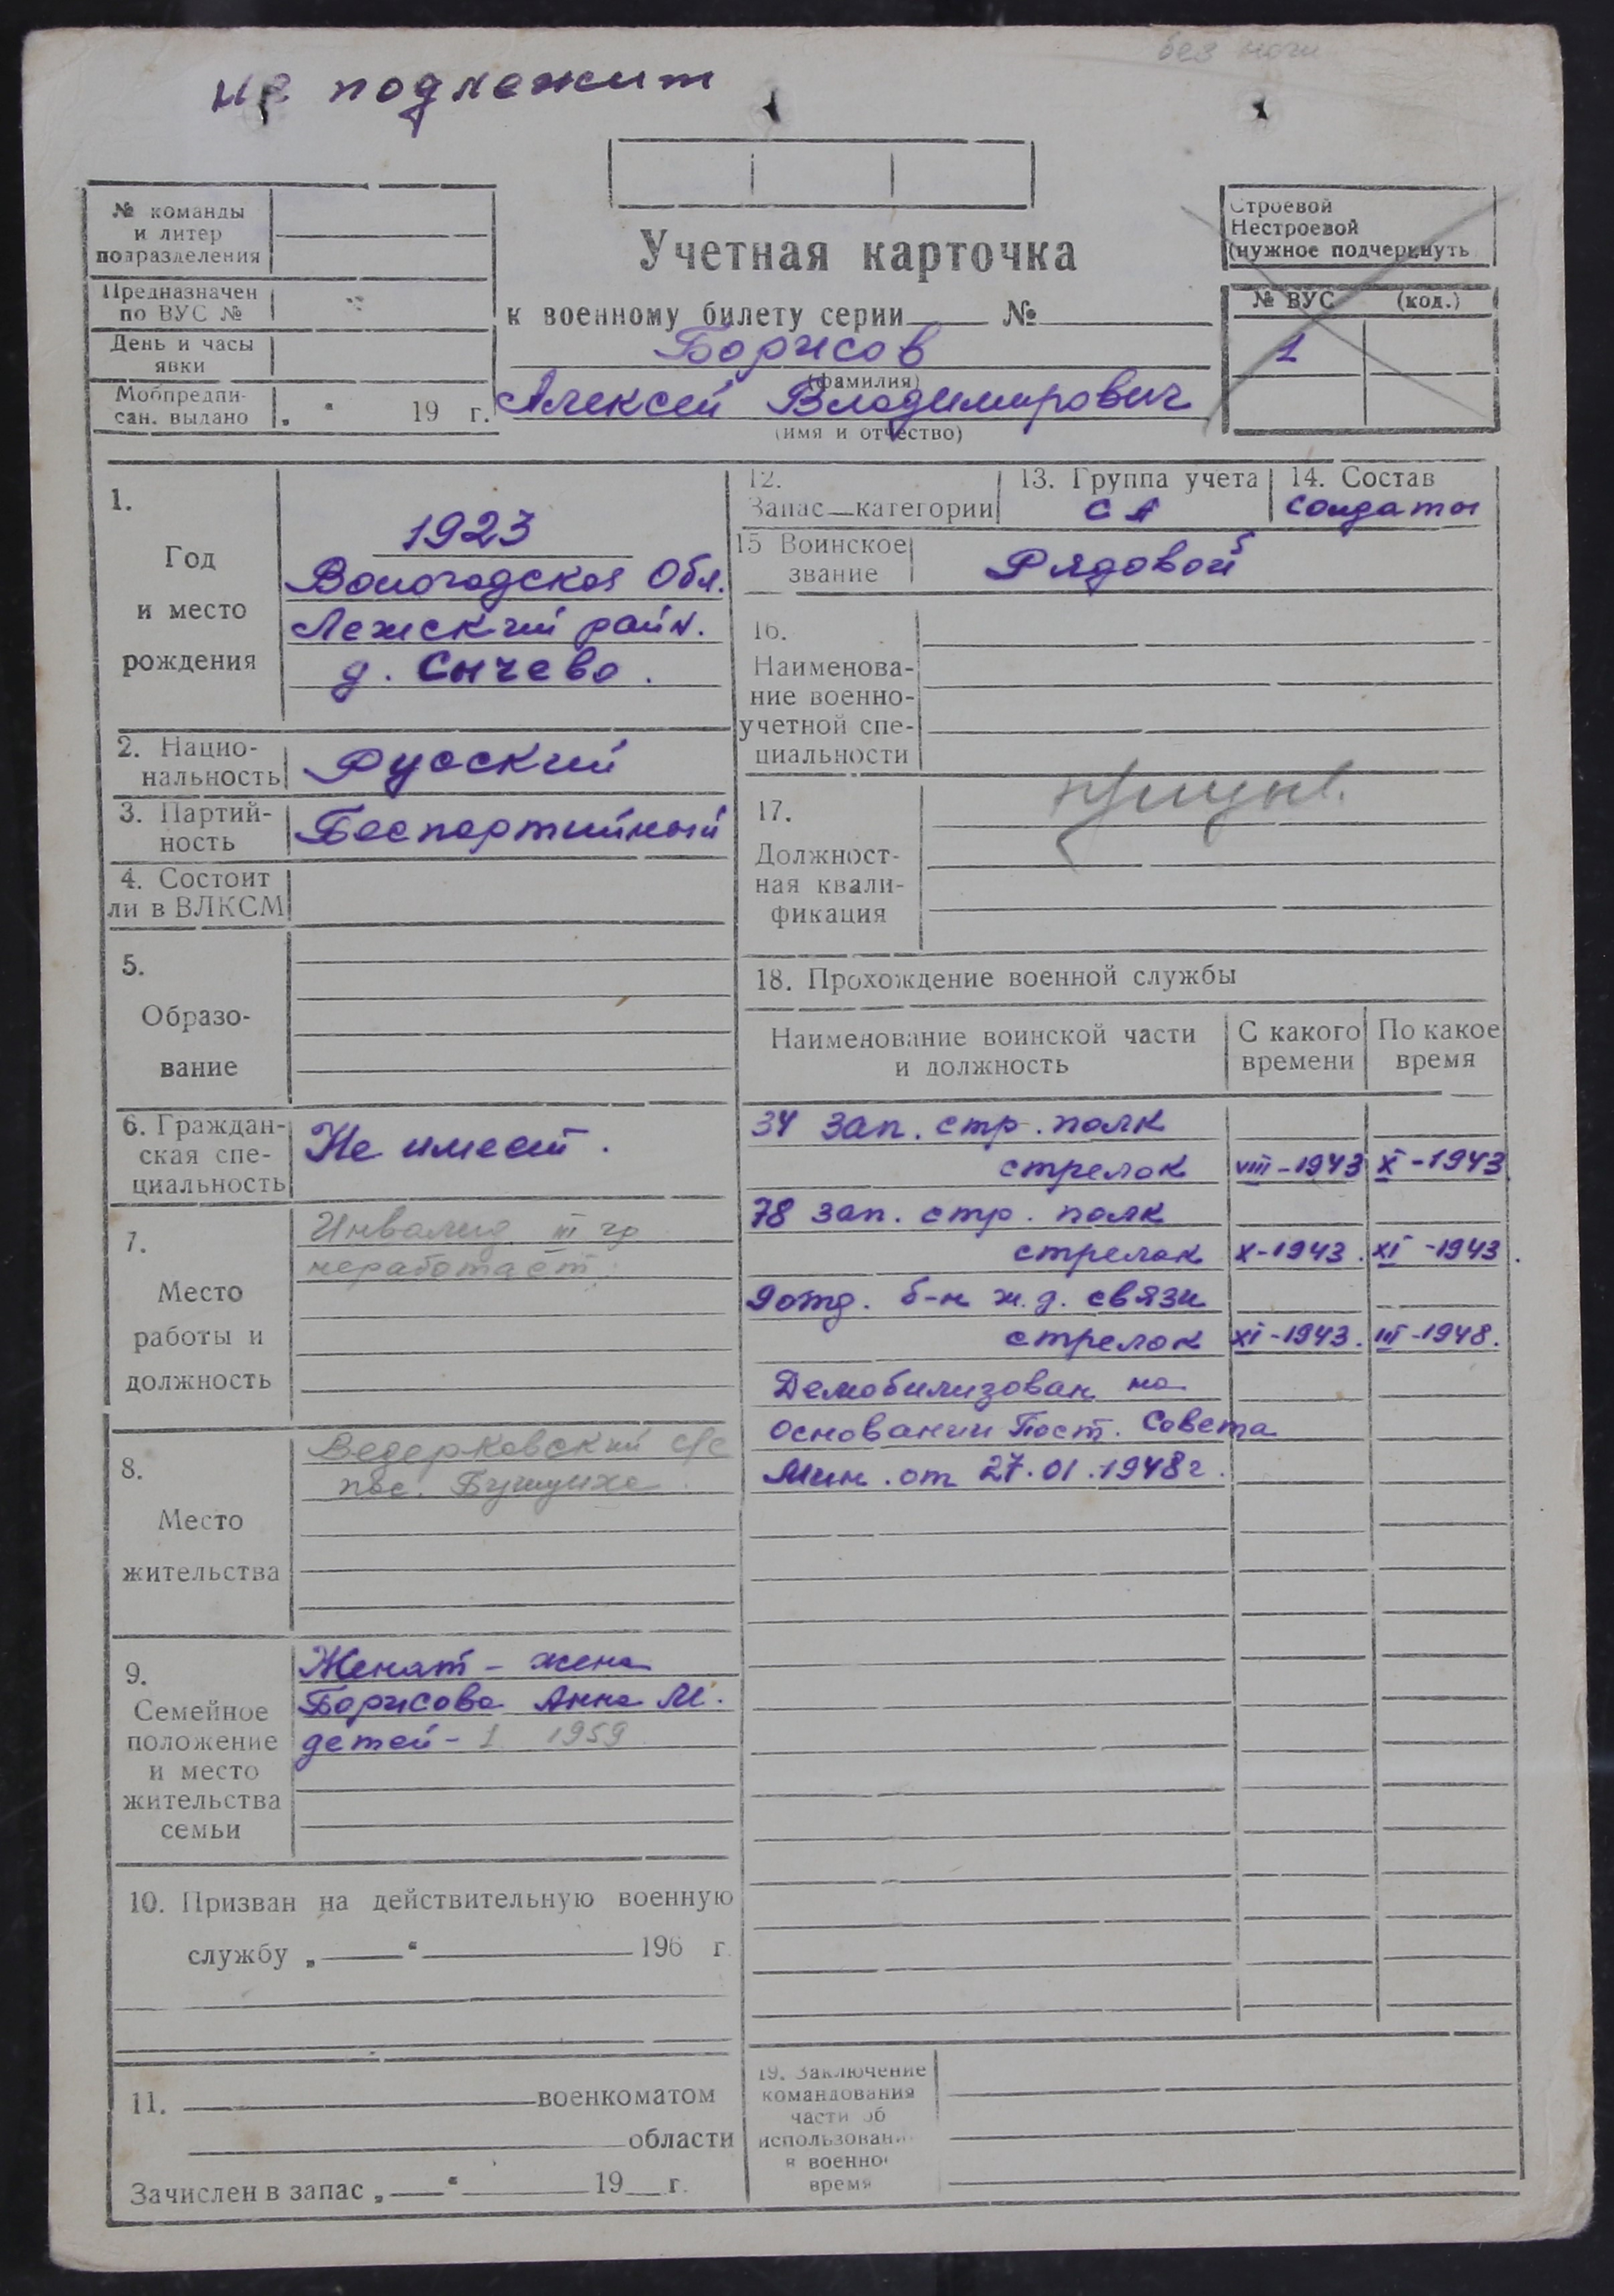 без ноги
не подлежит
№ команды
и литер
подразделения
Предназначен
по ВУС №
День и часы
явки
Мобпредпи-
сан. выдано „ “ 19 г.
Учетная карточка
к военному билету серии №
Борисов
(фамилия)
Алексей Владимирович
(имя и отчество)
Строевой
Нестроевой
(нужное подчеркнуть
№ ВУС (код.)
1
1.
Год
и место
рождения
1923
Вологодская Обл.
Лежский район.
д. Сычево.
2. Нацио-
нальность
Русский
3. Партий-
ность
Беспартийный
4. Состоит
ли в ВЛКСМ
5.
Образо-
вание
6. Граждан-
ская спе-
циальность
Не имеет.
7.
Место
работы и
должность
Инвалид III гр
неработает.
8.
Место
жительства
Ведерковский с/с
пос.
9.
Семейное
положение
и место
жительства
семьи
Женат - жена
Борисова Анна М.
детей - 1 1959
10. Призван на действительную военную
службу „ “ 196 г.
11. военкоматом
области
Зачислен в запас „ “ 19 г.
12.
Запас—категории
13. Группа учета
СА
14. Состав
солдаты
15 Воинское
звание
Рядовой
16.
Наименова-
ние военно-
учетной спе-
циальности
17.
Должност-
ная квали-
фикация
18. Прохождение военной службы
Наименование воинской части
и должность
С какого
времени
По какое
время
34 зап. стр. полк
стрелок VIII-1943 X-1943
78 зап. стр. полк
стрелок X-1943. XI-1943.
9 отд. б-н ж.д. связи
стрелок XI-1943. III-1948.
Демобилизован на
основании Пост. Совета
Мин. от 27.01.1948г.
19. Заключение
командования
части об
использован
в военно
время